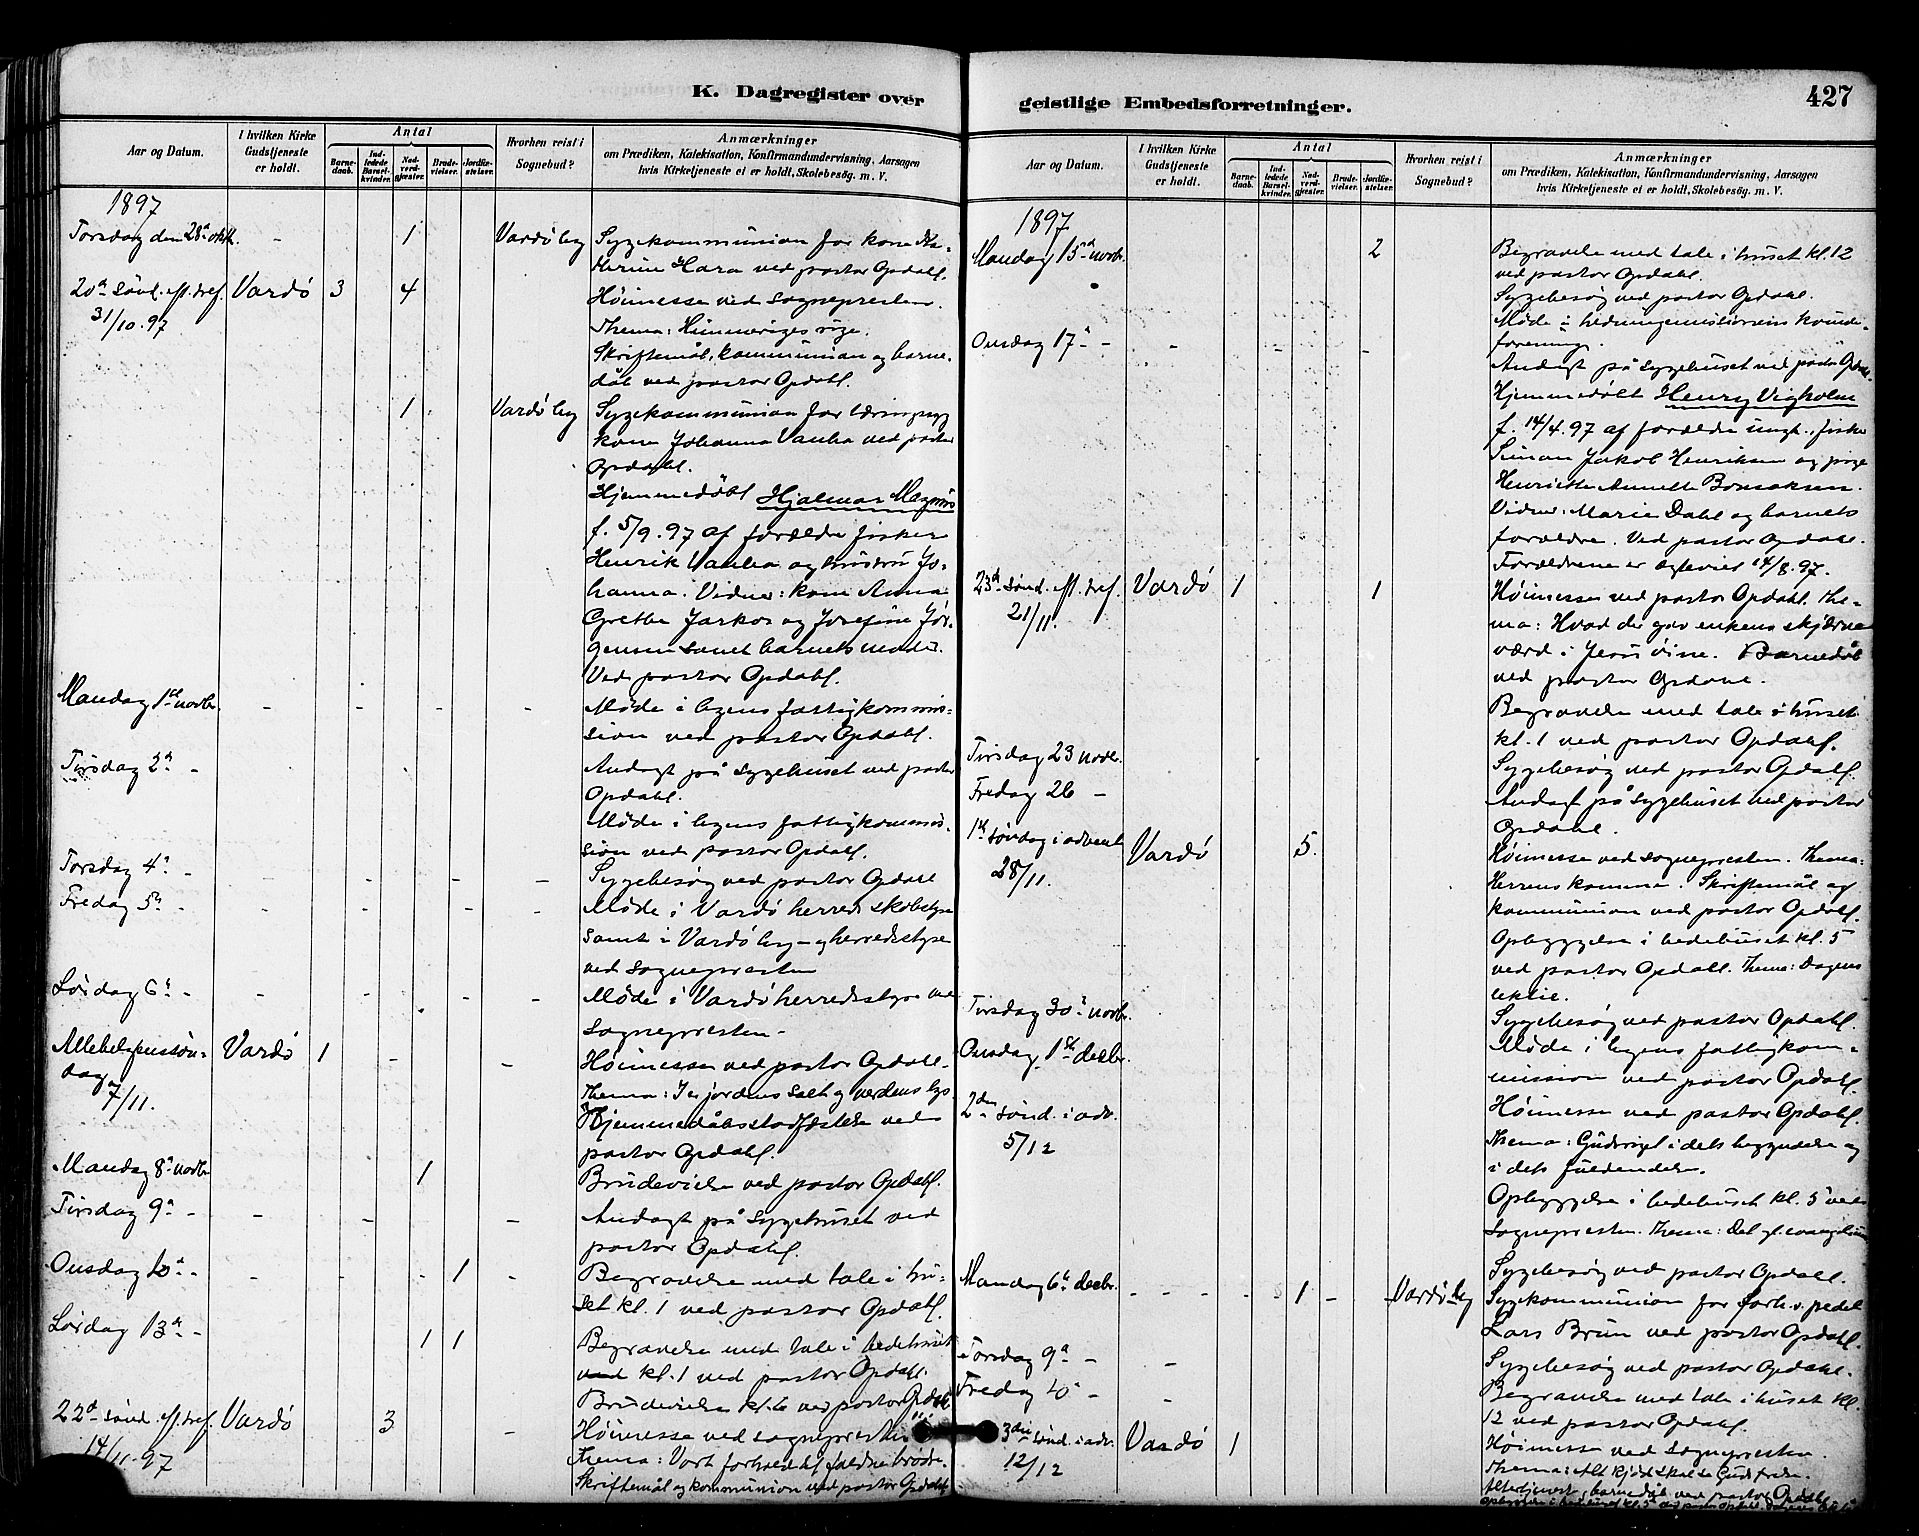 K. Dagregister over
Aar og Datum.
I hvilken Kirke Gudstjeneste er holdt.
Antal
Barne-daab.
Ind-ledede Barsel-kvinder.
Nad-verd-gjæster.
Brude-vielser.
Jordfæ-stelser.
Hvorhen reist i Sognebud?
Anmærkninger
om Prædiken, Katekisation, Konfirmandundervisning, Aarsagen
hvis Kirketjeneste ei er holdt, Skolebesøg. m. V.
1897
Torsdag den 28de oktbr. - 1 Vardø by Sygekommunion for kone Ka-
therine Hara ved pastor Opdahl.
20de sønd. eft. tref. Vardø 3 4 Høimesse ved sognepresten.
31/10.97 Thema: Himmeriges rige.
Skriftemål, kommunion og barne-
dåb ved pastor Opdahl.
1 Vardø by Sygekommunion for tæringssyg
kone Johanna Vanha ved pastor
Opdahl.
Hjemmedøbt Hjalmar Magnus
f. 5/9.97 af forældre fisker
Henrik Vanha og hustru Jo-
hanna. Vidner: kone Anna
Grethe Jarkos og Josefine Jør-
gensen samt barnets moder.
Ved pastor Opdahl.
Mandag 1ste novbr. - - - - Møde i byens fattigkommis-
sion ved pastor Opdahl.
Tirsdag 2den - Andagt på sygehuset ved pastor
Opdahl.
Møde i byens fattigkommis-
sion ved pastor Opdahl.
Torsdag 4de - - - - - Sygebesøg ved pastor Opdahl
Fredag 5te - - - - - Møde i Vardø herreds skolestyre
samt i Vardø by- og herredsstyre
ved sognepresten
Lørdag 6te - - - - - - Møde i Vardø herredsstyre ved
sognepresten -
Allehelgenssøn- Vardø 1 - - Høimesse ved pastor Opdahl.
dag Thema: I er jordens salt og verdens lys.
7/11. Hjemmedåbsstadfæstelse ved
pastor Opdahl.
Mandag 8de novbr 1 Brudevielse ved pastor Opdahl.
Tirsdag 9de - - - - Andagt på sygehuset ved
pastor Opdahl.
Onsdag 10de - - - - - 1 - Begravelse med tale i hu-
set kl. 1 ved pastor Opdahl.
Lørdag 13de - 1 1 Begravelse med tale i bedehuset
ved kl. 1 ved pastor Opdahl.
Brudevielse kl. 6 ved pastor Opdahl
22de sønd. eft. tref. Vardø 3 - Høimesse ved sognepresten
14/11.97 Thema: Vort forhold til faldne brødre.
Skriftemål og kommunion ved pastor Opdahl.
geistlige Embedsforretninger.
427
Aar og Datum.
I hvilken Kirke Gudstjeneste er holdt.
Antal
Barne-daab.
Ind-ledede Barsel-kvinder.
Nad-verd-gjæster.
Brude-vielser.
Jordfæ-stelser.
Hvorhen reist i Sognebud?
Anmærkninger
om Prædiken, Katekisation, Konfirmandundervisning, Aarsagen
hvis Kirketjeneste ei er holdt, Skolebesøg. m. V.
1897
Mandag 15de novbr. 2 Begravelse med tale i huset kl. 12
ved pastor Opdahl.
Sygebesøg ved pastor Opdahl.
Møde i hedningemissionens kvinde-
forening.
Onsdag 17de - - - - Andagt på sygehuset ved pastor Opdahl.
Hjemmedøbt Henry Vigholm
f. 14/4.97 af forældre ungk., fisker
Simon Jakob Henriksen og pige
Henriette Annette Bonsaksen.
Vidner: Marie Dahl og barnets
forældre. Ved pastor Opdahl.
Forældrene er egteviet 14/8.97.
23de sønd. eft. tref. Vardø 1 1 Høimesse ved pastor Opdahl. The-
21/11. ma: Hvad der gav enkens skjærve
værd i Jesu øine. Barnedåb
ved pastor Opdahl.
Begravelse med tale i huset
kl. 1 ved pastor Opdahl.
Tirsdag 23 novbr. Sygebesøg ved pastor Opdahl.
Fredag 26 - Andagt på sygehuset ved pastor
Opdahl.
1ste søndag i advent Vardø 5. Høimesse ved sognepresten. Thema:
28/11. Herrens komme. Skriftemål og
kommunion ved pastor Opdahl.
Opbyggelse i bedehuset kl. 5
ved pastor Opdahl. Thema: Dagens
lektie.
Tirsdag 30te novbr. Sygebesøg ved pastor Opdahl.
Onsdag 1ste decbr. Møde i byens fattigkom-
mission ved pastor Opdahl.
2den sønd. i adv. Høimesse ved pastor Opdahl.
5/12 Thema: Gudsriget i dets begyndelse og
i dets fuldendelse.
Opbyggelse i bedehuset kl. 5 ved
sognepresten. Thema: Det gl. evangelium
Sygebesøg ved pastor Opdahl.
Mandag 6te decbr. - - - - 1 - Vardø by Sygekommunion for forh. v. pedel
Lars Brun ved pastor Opdahl.
Torsdag 9de - - Sygebesøg ved pastor Opdahl.
Fredag 10de - - Begravelse med tale i huset kl.
12 ved pastor Opdahl.
3die sønd. i adv. Vardø 1 Høimesse ved sognepresten.
12/12 Thema: Alt kjød skal se Guds frelse.
Altertjeneste, barnedåb ved pastor Opdahl